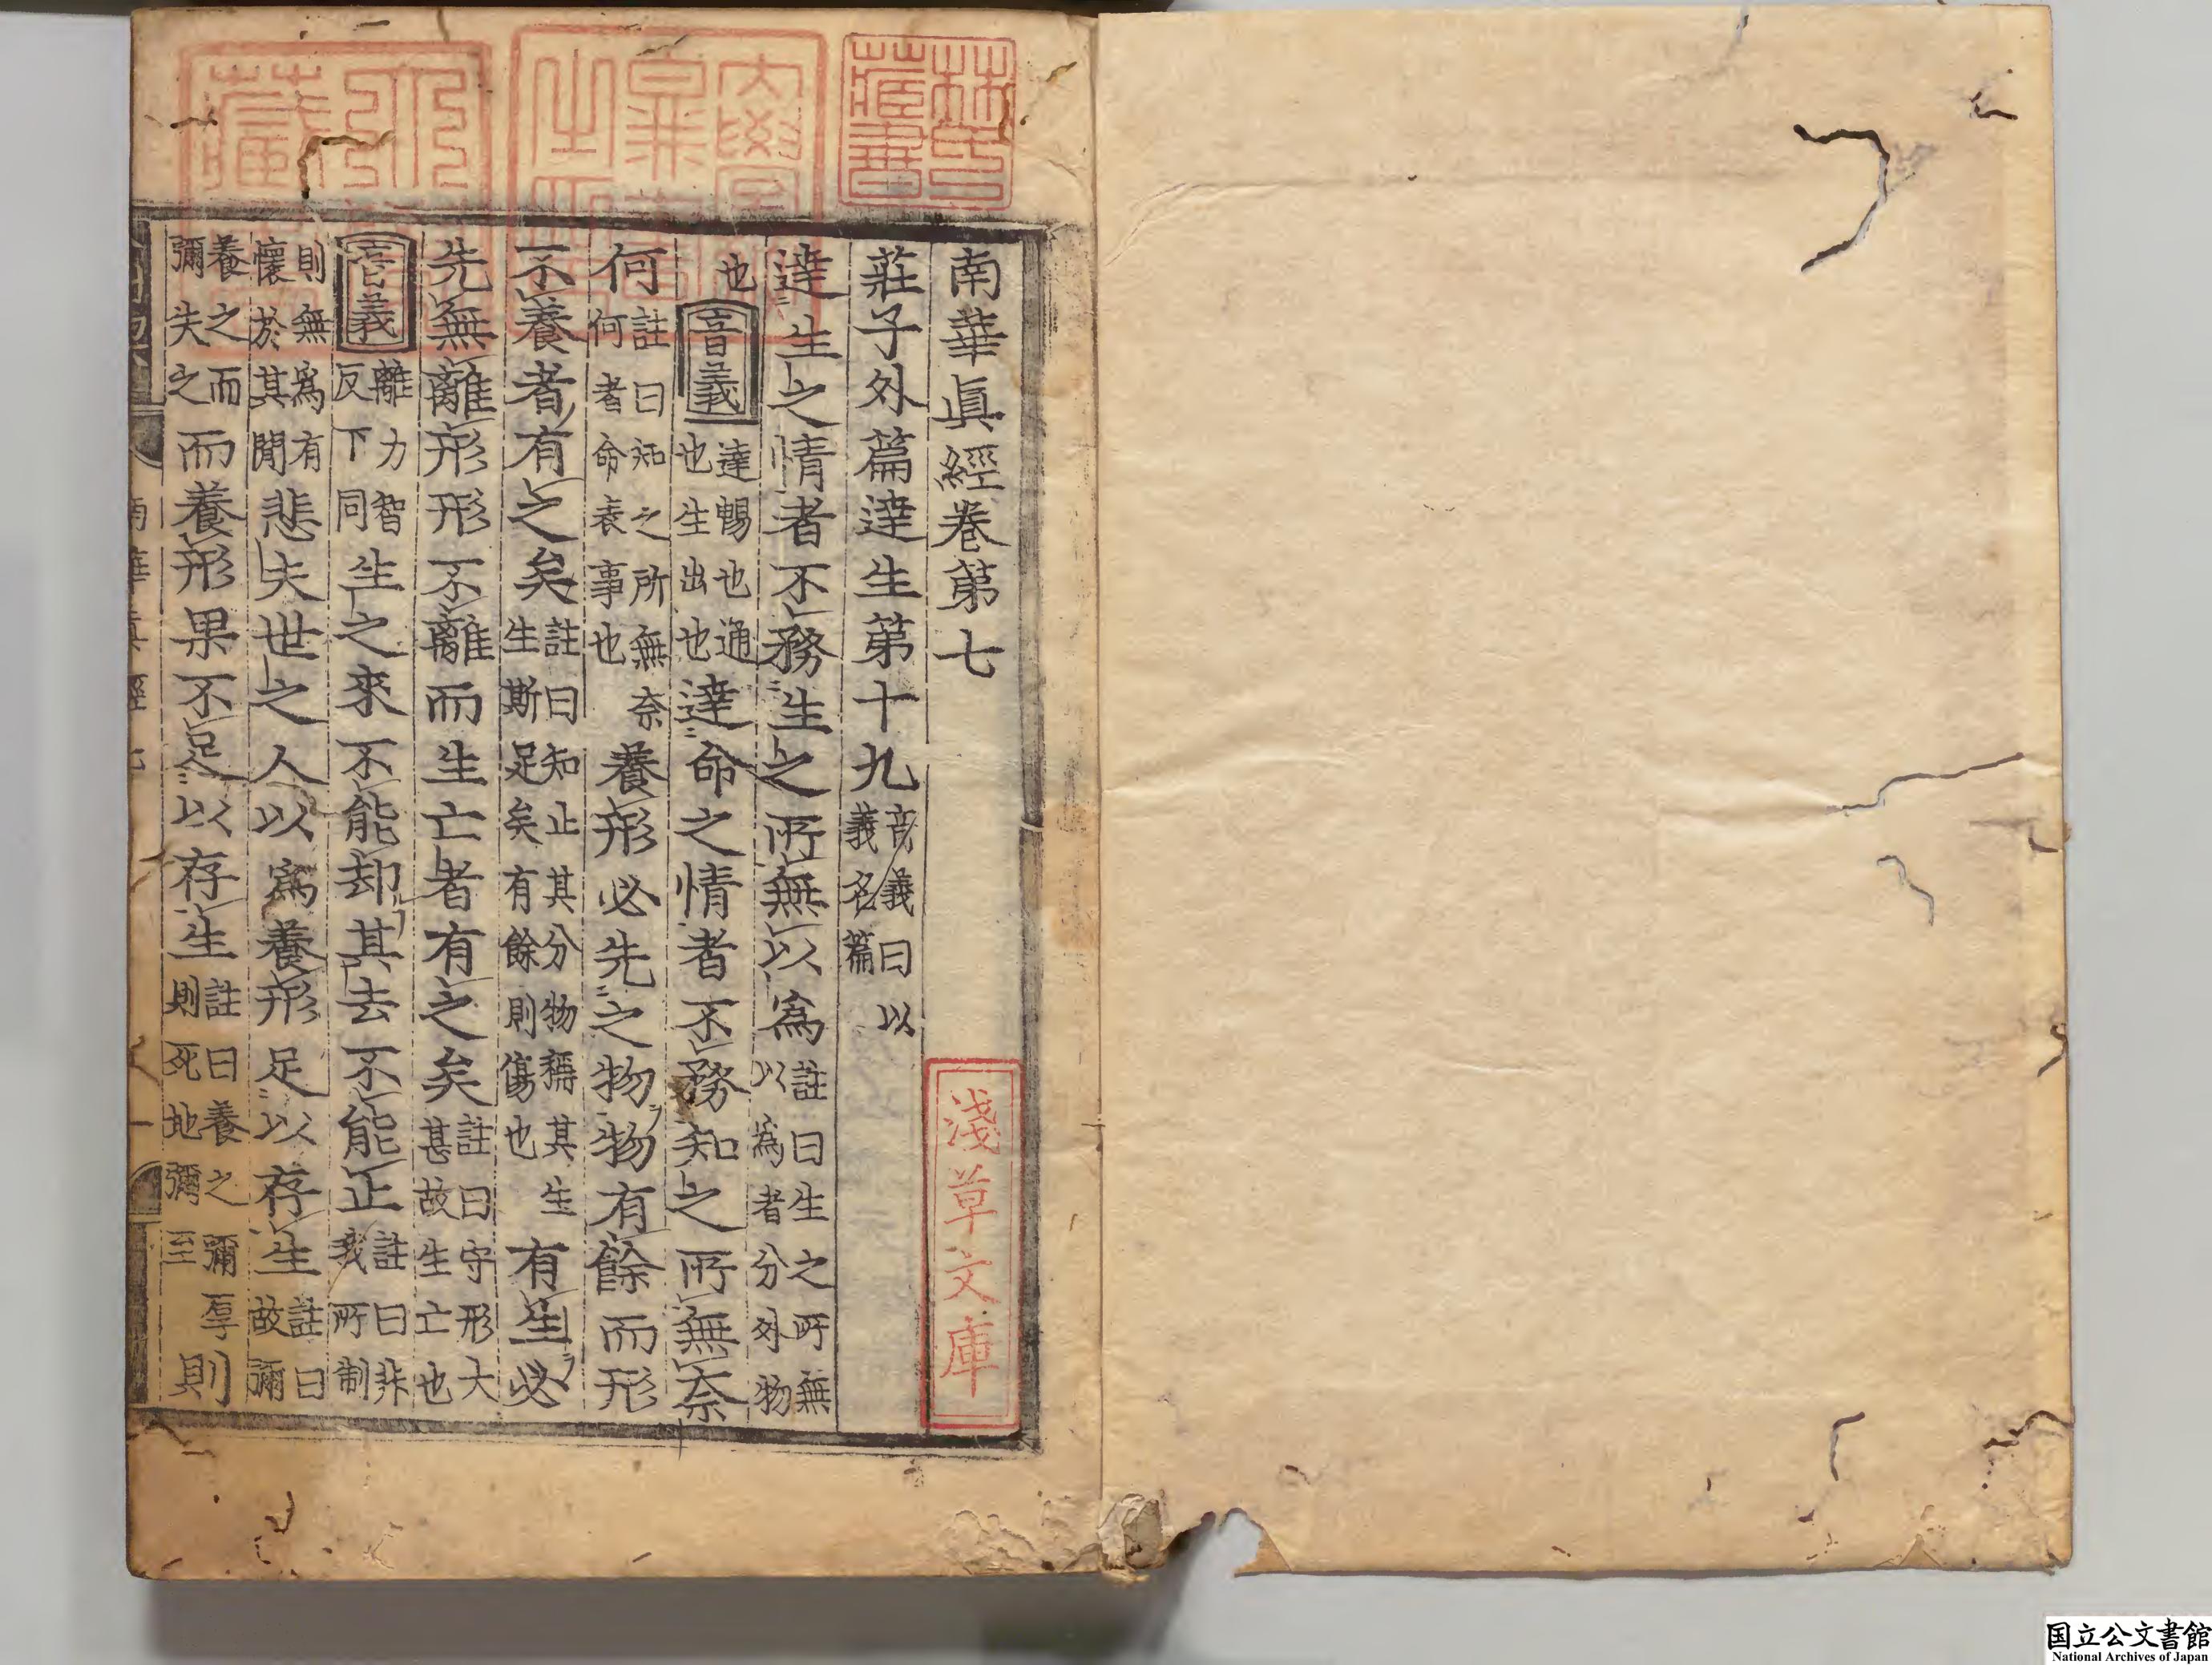 南華眞經卷第七
莊子外篇達生第十九音義曰以義名篇
達生之情者不務生之所無以爲註曰生之所無以爲者分外物
也音義達暢也通也生出也達命之情者不務知之所無奈
何註曰知之所無奈何者命表事也養形必先之物物有餘而形
不養者有之矣註曰知止其分物稱其生生斯足矣有餘則傷也有生必
先無離形形不離而生亡者有之矣註曰守形大甚故生亡也
音義離力智反下同生之來不能却其去不能止註曰非我所制
則無爲有懷於其間悲夫世之人以爲養形足以存生註曰故彌
養之而彌失之而養形果不足以存生註曰養之彌厚則死地彌至則
南華眞經七
一
林氏藏書
淺草文庫
国立公文書館
National Archives of Japan